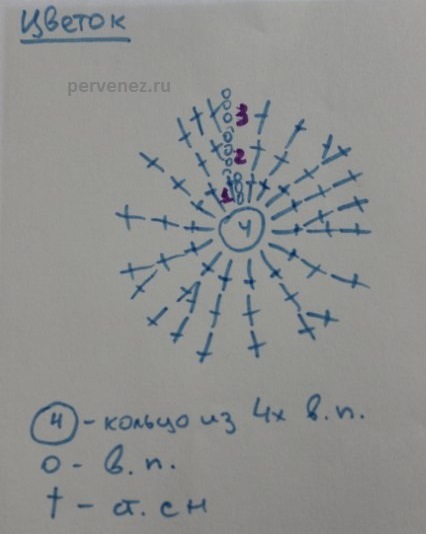 Цветок
pervenez.ru
3
2
1
4
4 - кольцо из 4х в.п.
о - в.п.
† - ст. с н